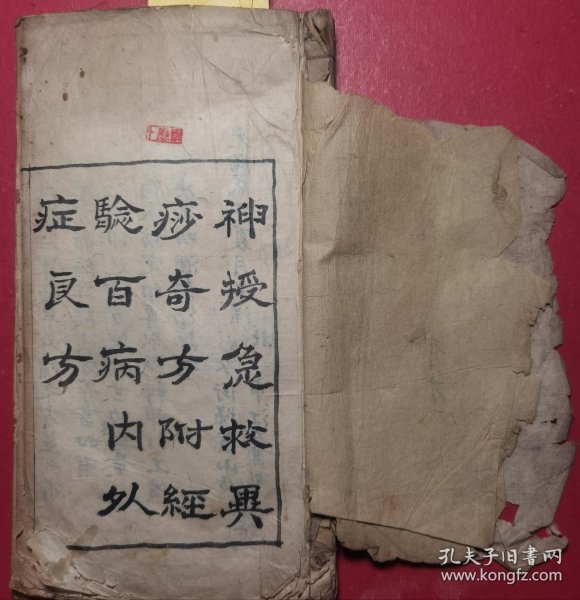 神授急救異
痧奇方附經
驗百病内外
症良方
孔夫子旧书网
www.kongfz.com